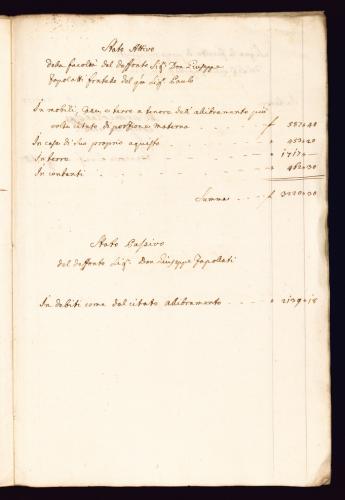 Stato Attivo
della facoltà del deffonto Sig: Don Giuseppe
Fapolatti fratello del qm Sig: Paulo
In mobili, e terre a tenore dell' allibramento più
volte citato di porzione materna - - - f 587 » 40
In case di suo proprio aquesto - - - - » 453 » 20
In terre - - - - - - - - » 1717 » —
In contanti - - - - - - - » 462 » 30
Summa - - - f 3220 » 30
Stato Passivo
del deffonto Sig: Don Giuseppe Fapollati
In debiti come dal citato allibramento - - - - » 2139 » 18